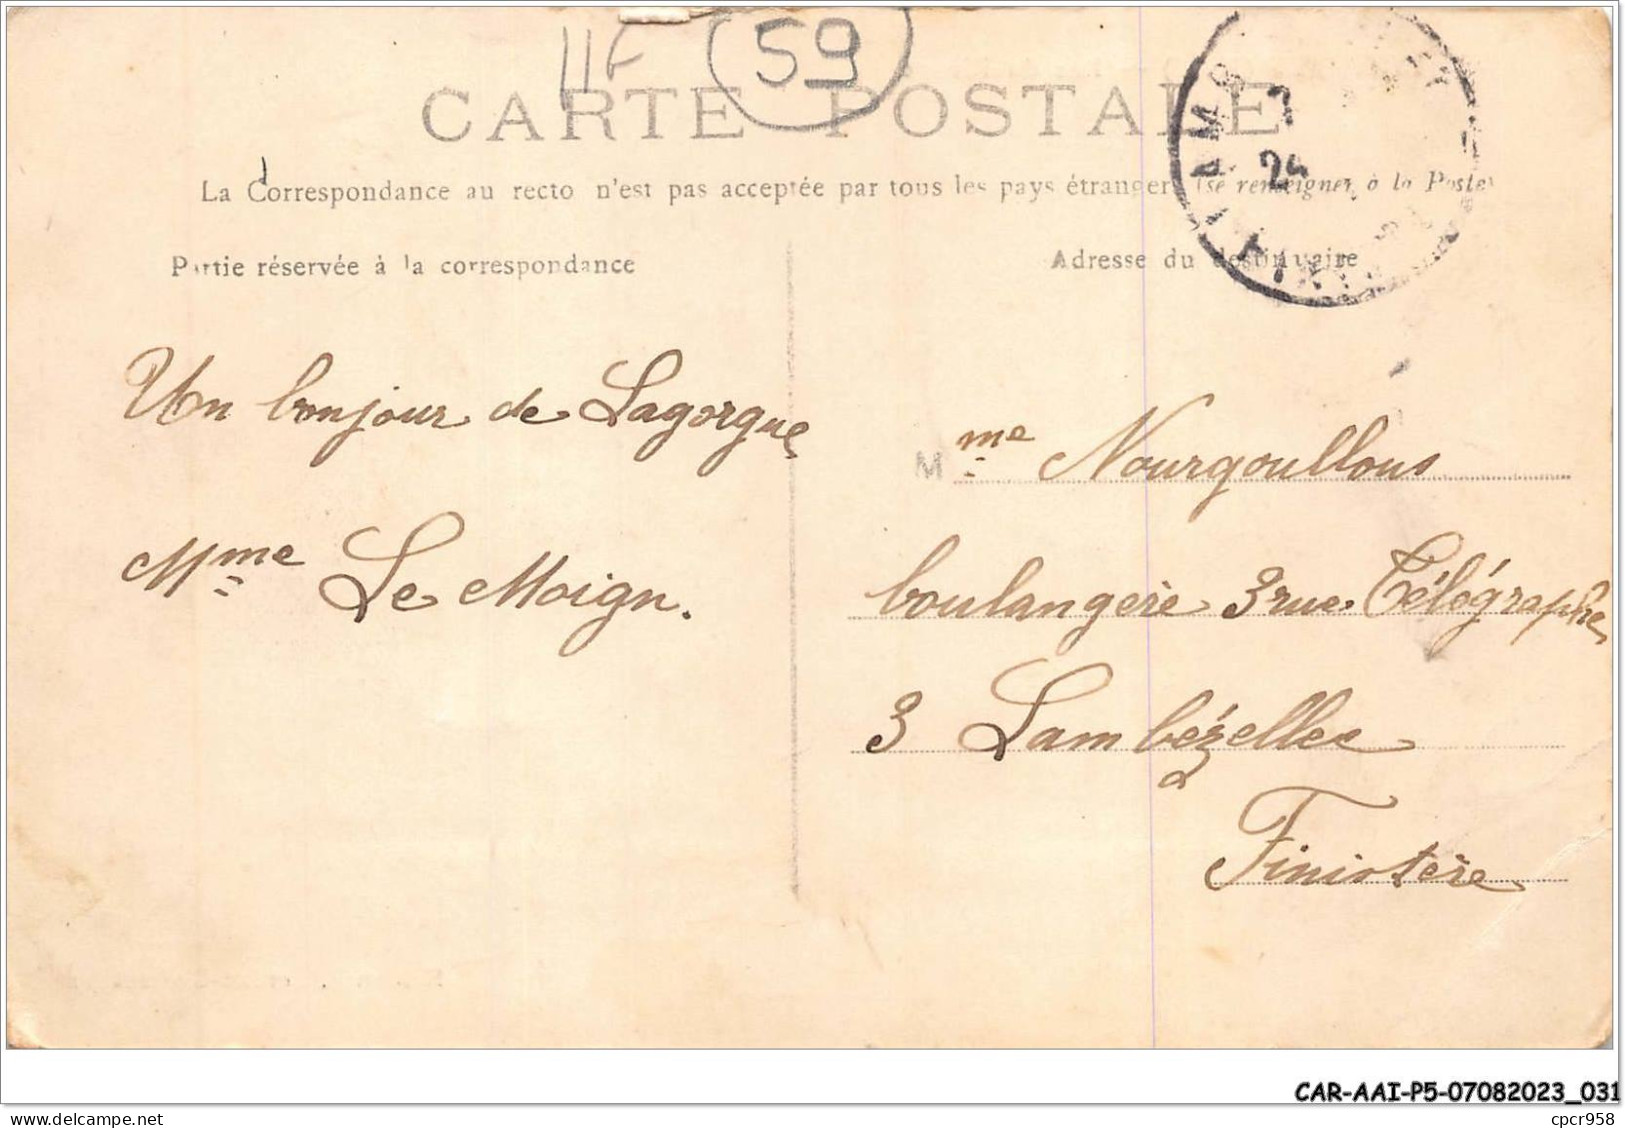 11F 59
CARTE POSTALE
La Correspondance au recto n'est pas acceptée par tous les pays étrangers (se renseigner à la Poste)
Partie réservée à la correspondance
Adresse du destinataire
24
Un bonjour de Lagorgue
Mme Le Moign.
Mme Nourgoullous
boulangère 3 rue Télégraphe
3 Lambézellec
Finistère
CAR-AAI-P5-07082023_031
cpcr958